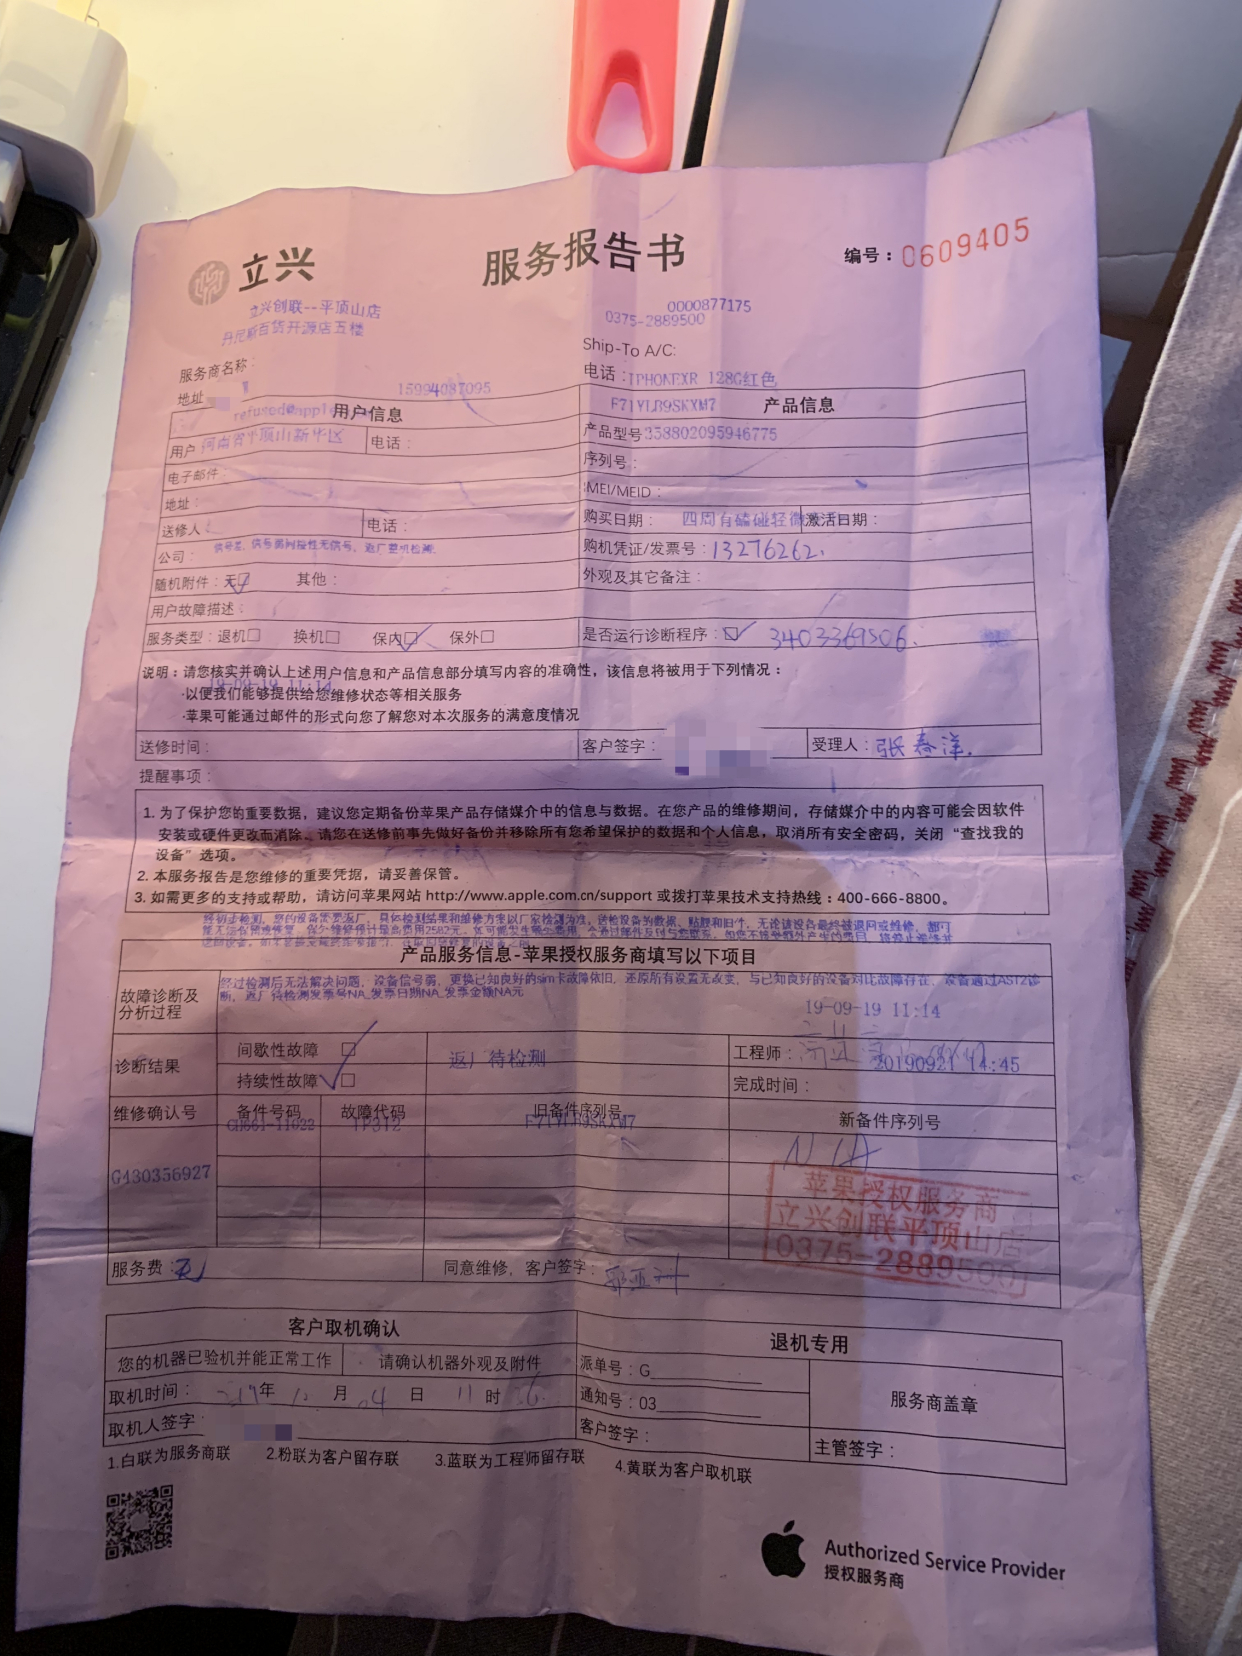 立兴
服务报告书
编号：0609405
立兴创联--平顶山店
0000877175
丹尼斯百货开源店五楼
0375-2889500
服务商名称：
Ship-To A/C:
地址
电话：IPHONEXR 128G红色
15994087095
refused@apple
用户信息
F71YLR9SKXM7 产品信息
用户 河南省平顶山新华区 电话：
产品型号358802095946775
电子邮件：
序列号：
地址：
IMEI/MEID：
送修人： 电话：
购买日期： 四周有磕碰轻微 激活日期：
公司： 信号差，信号弱间接性无信号，返厂
购机凭证/发票号：13276262.
随机附件：无 其他：
外观及其它备注：
用户故障描述：
服务类型：退机 换机 保内 保外
是否运行诊断程序： 3403369506.
说明：请您核实并确认上述用户信息和产品信息部分填写内容的准确性，该信息将被用于下列情况：
19-09-19 11:14
·以便我们能够提供给您维修状态等相关服务
·苹果可能通过邮件的形式向您了解您对本次服务的满意度情况
送修时间： 客户签字： 受理人：张春洋.
提醒事项：
1. 为了保护您的重要数据，建议您定期备份苹果产品存储媒介中的信息与数据。在您产品的维修期间，存储媒介中的内容可能会因软件
安装或硬件更改而消除、请您在送修前事先做好备份并移除所有您希望保护的数据和个人信息，取消所有安全密码，关闭“查找我的
设备”选项。
2. 本服务报告是您维修的重要凭据，请妥善保管。
3. 如需更多的支持或帮助，请访问苹果网站 http://www.apple.com.cn/support 或拨打苹果技术支持热线：400-666-8800。
经初步检测，您的设备需要返厂，具体检测结果和维修方案以厂家检测为准，送检设备的数据、贴膜和旧件，无论该设备最终被退回或维修，都可
能无法保留或恢复，保外维修预计最高费用2582元，
产品服务信息-苹果授权服务商填写以下项目
故障诊断及
分析过程
经过检测后无法解决问题，设备信号弱，更换已知良好的sim卡故障依旧，还原所有设置无改变，与已知良好的设备对比故障存在，设备通过AST2诊
断，返厂待检测发票号NA_发票日期NA_发票金额NA元
19-09-19 11:14
诊断结果
间歇性故障
持续性故障
返厂待检测
工程师：
20190921 14:45
完成时间：
维修确认号 备件号码 故障代码 旧备件序列号 新备件序列号
G430356927 GH661-11022 TP312 F71YLR9SKXM7 N/A
苹果授权服务商
立兴创联平顶山店
0375-2889500
服务费：无
同意维修，客户签字：
客户取机确认
退机专用
您的机器已验机并能正常工作 请确认机器外观及附件
派单号：G
取机时间： 年 月 04 日 11 时
通知号：03
服务商盖章
取机人签字
客户签字：
主管签字：
1.白联为服务商联 2.粉联为客户留存联 3.蓝联为工程师留存联 4.黄联为客户取机联
Authorized Service Provider
授权服务商